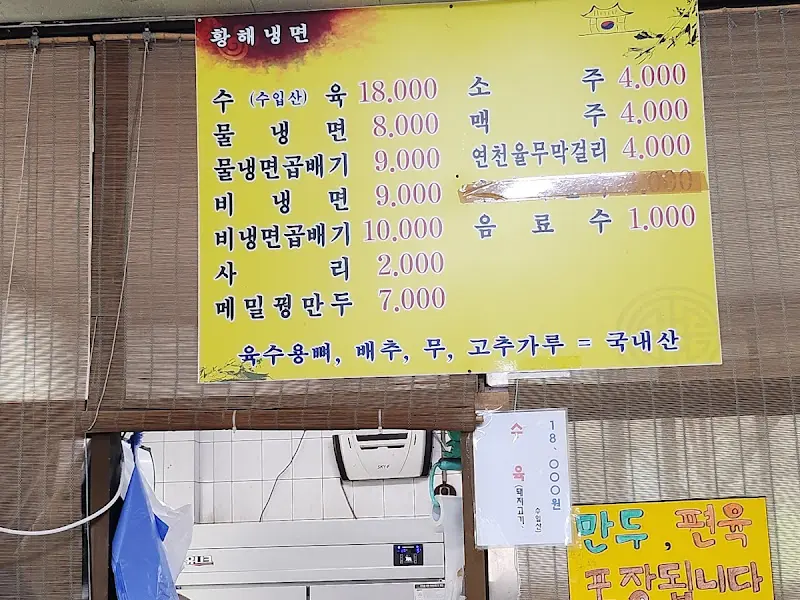 황해냉면
수 (수입산) 육 18.000
물 냉 면 8.000
물냉면곱배기 9.000
비 냉 면 9.000
비냉면곱배기 10.000
사 리 2.000
메밀평만두 7.000
소 주 4.000
맥 주 4.000
연천율무막걸리 4.000
음 료 수 1.000
육수용뼈, 배추, 무, 고추가루 = 국내산
수육 (돼지고기, 수입산)
18.000원
만두, 편육
포장됩니다
SKY-F